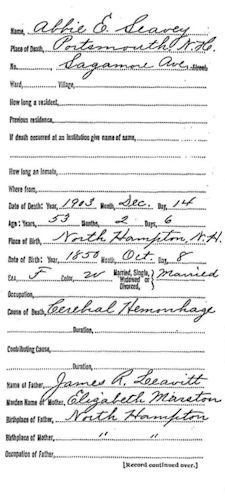 Name, Abbie E. Seavey
Place of Death, Portsmouth N.H.
No. Sagamore Ave. Street,
Ward, Village,
How long a resident,
Previous residence,
If death occurred at an institution give name of same,
How long an inmate,
Where from,
Date of Death: Year, 1903 Month, Dec. Day, 14
Age: Years, 53 Months, 2 Days, 6
Place of Birth, North Hampton N.H.
Date of Birth: Year, 1850 Month, Oct. Day, 8
Sex, F Color, W Married, Single, Widowed or Divorced, } Married
Occupation,
Cause of Death, Cerebral Hemorrhage
Duration,
Contributing Cause,
Duration,
Name of Father, James R. Leavitt
Maiden Name of Mother, Elizabeth Marston
Birthplace of Father, North Hampton
Birthplace of Mother, " "
Occupation of Father,
[Record continued over.]